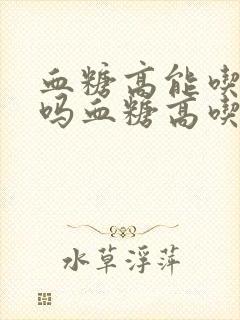 血糖高能喫
吗血糖高喫
水草浮萍